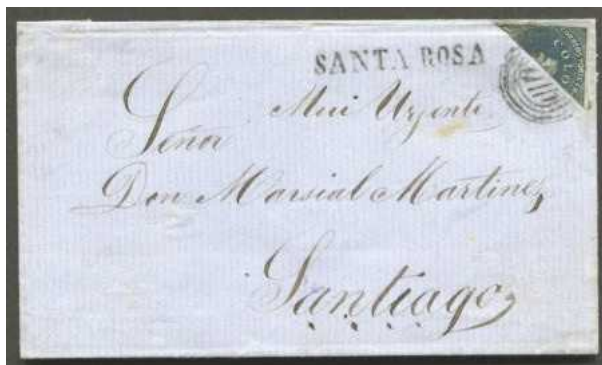 SANTA ROSA
COLO
Mui Urjente
Señor
Don Marsial Martinez
Santiago